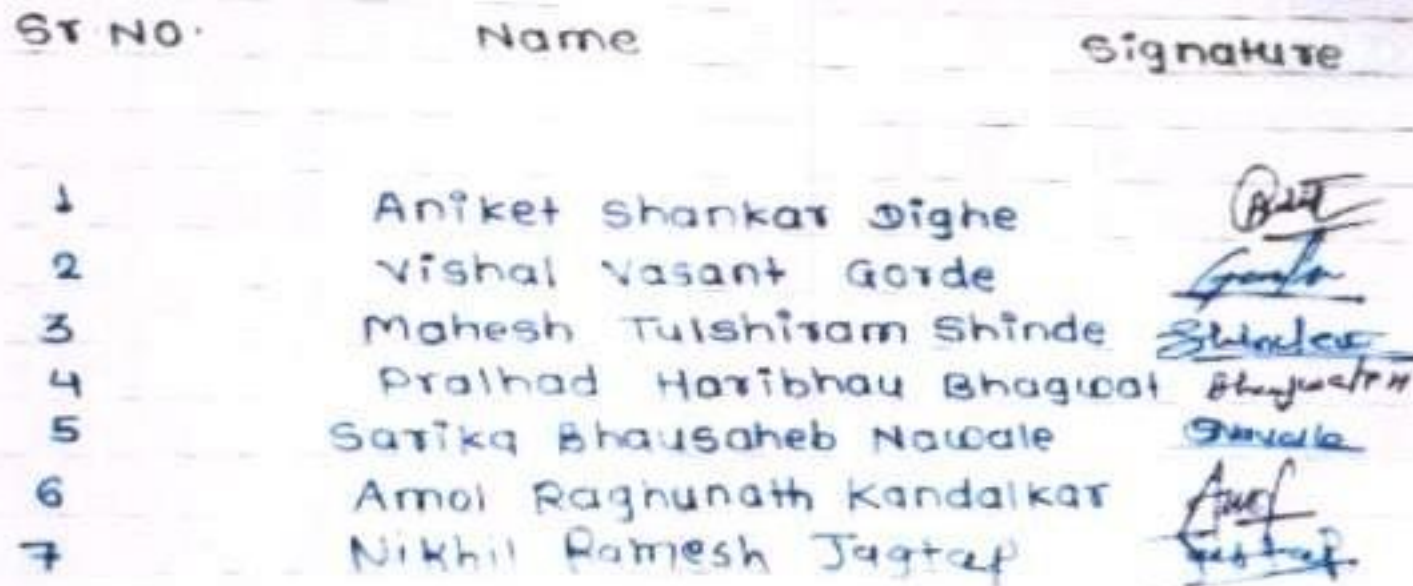 Sr No. Name Signature
1 Aniket Shankar Dighe
2 Vishal Vasant Gorde
3 Mahesh Tulshiram Shinde Shinde
4 Pralhad Haribhau Bhagwat Bhagwat P H
5 Sarika Bhausaheb Nawale
6 Amol Raghunath Kandalkar Amol
7 Nikhil Ramesh Jagtap Jagtap